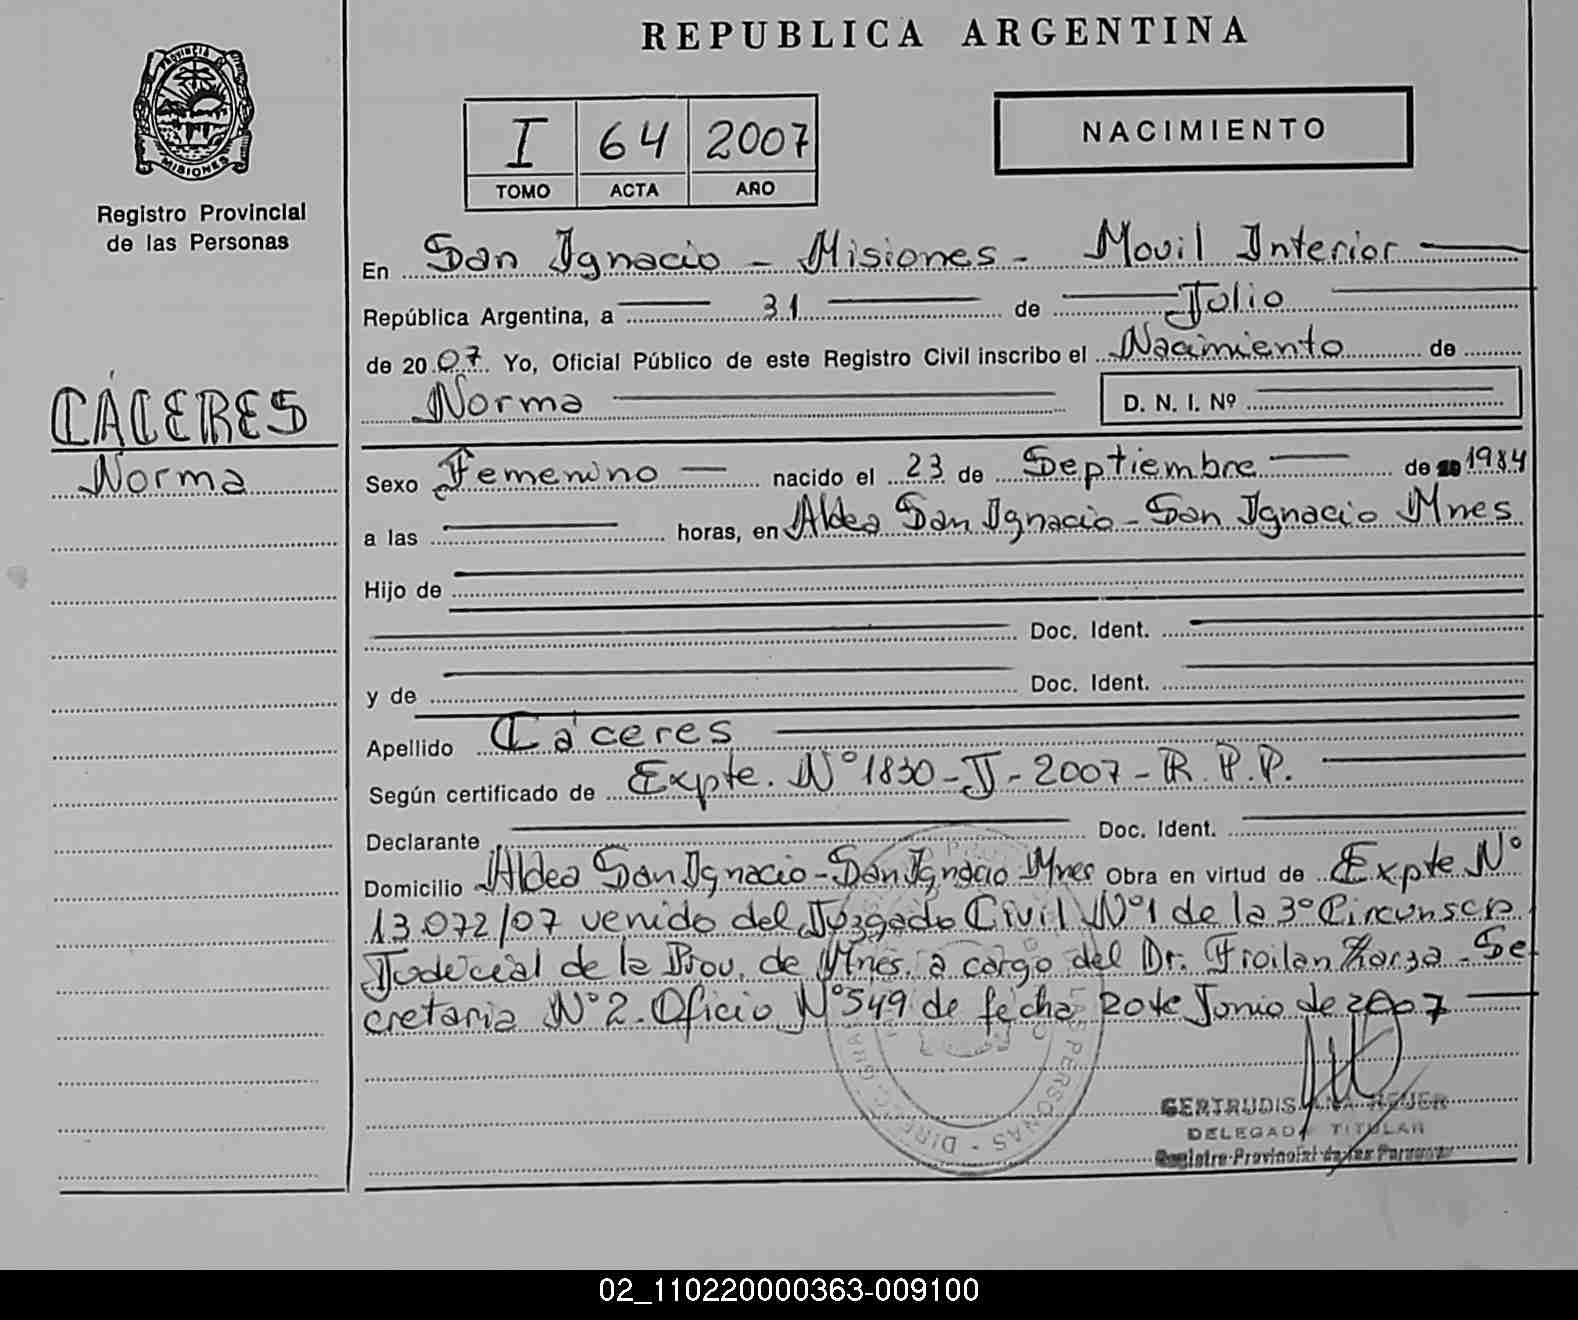 REPUBLICA ARGENTINA
PROVINCIA DE
MISIONES
Registro Provincial
de las Personas
I 64 2007
TOMO ACTA AÑO
NACIMIENTO
En San Ignacio - Misiones - Movil Interior
República Argentina, a 31 de Julio
de 2007 Yo, Oficial Público de este Registro Civil inscribo el Nacimiento de
Norma D. N. I. Nº
CÁCERES
Norma
Sexo Femenino nacido el 23 de Septiembre de 1984
a las horas, en Aldea San Ignacio - San Ignacio Mnes
Hijo de
Doc. Ident.
y de Doc. Ident.
Apellido Cáceres
Según certificado de Expte. Nº 1830 - J - 2007 - R. P. P.
Declarante Doc. Ident.
Domicilio Aldea San Ignacio - San Ignacio Mnes Obra en virtud de Expte Nº
13.072/07 venido del Juzgado Civil Nº1 de la 3º Circunscp
Judicial de la Prov. de Mnes. a cargo del Dr. Froilan Zarza - Se
cretaria Nº 2. Oficio Nº 549 de fecha 20 de Junio de 2007
PERSONAS - DIREC. GRAL
GERTRUDIS
DELEGADA TITULAR
Registro Provincial de las Personas
02_110220000363-009100